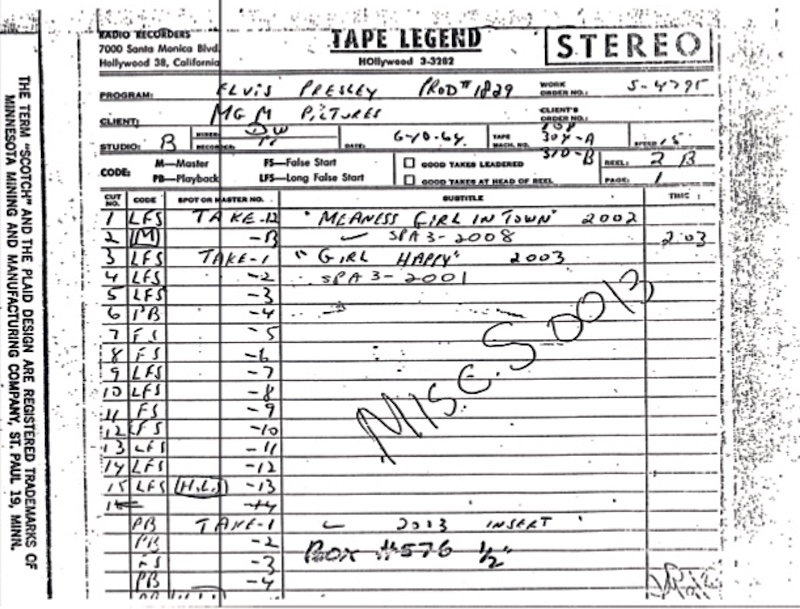 RADIO RECORDERS
7000 Santa Monica Blvd.
Hollywood 38, California
TAPE LEGEND
HOllywood 3-3282
STEREO
PROGRAM: ELVIS PRESLEY PROD# 1829 WORK ORDER NO.: S-4795
CLIENT: MGM PICTURES CLIENT'S ORDER NO.:
STUDIO: B MIXER: DW RECORDER: DATE: 6-10-64 TAPE MACH. NO. 304-A 310-B SPEED 15
CODE: M—Master FS—False Start GOOD TAKES LEADERED REEL: 2 B
PB—Playback LFS—Long False Start GOOD TAKES AT HEAD OF REEL PAGE: 1
CUT NO. CODE SPOT OR MASTER NO. SUBTITLE
1 LFS TAKE-12 "MEANESS GIRL IN TOWN" 2002
2 M SPA3-2008 2:03
3 LFS TAKE-1 "GIRL HAPPY" 2003
4 LFS -2 SPA3-2001
5 LFS -3
6 PB -4
7 FS -5
8 FS -6
9 LFS -7
10 LFS -8
11 FS -9
12 LFS -10
13 LFS -11
14 LFS -12
15 LFS (H.L.) -13
PB TAKE-1 2003 INSERT
PB -2 BOX #576 1/2"
FS -3
PB -4
MISC. S-0013
THE TERM "SCOTCH" AND THE PLAID DESIGN ARE REGISTERED TRADEMARKS OF
MINNESOTA MINING AND MANUFACTURING COMPANY, ST. PAUL 19, MINN.